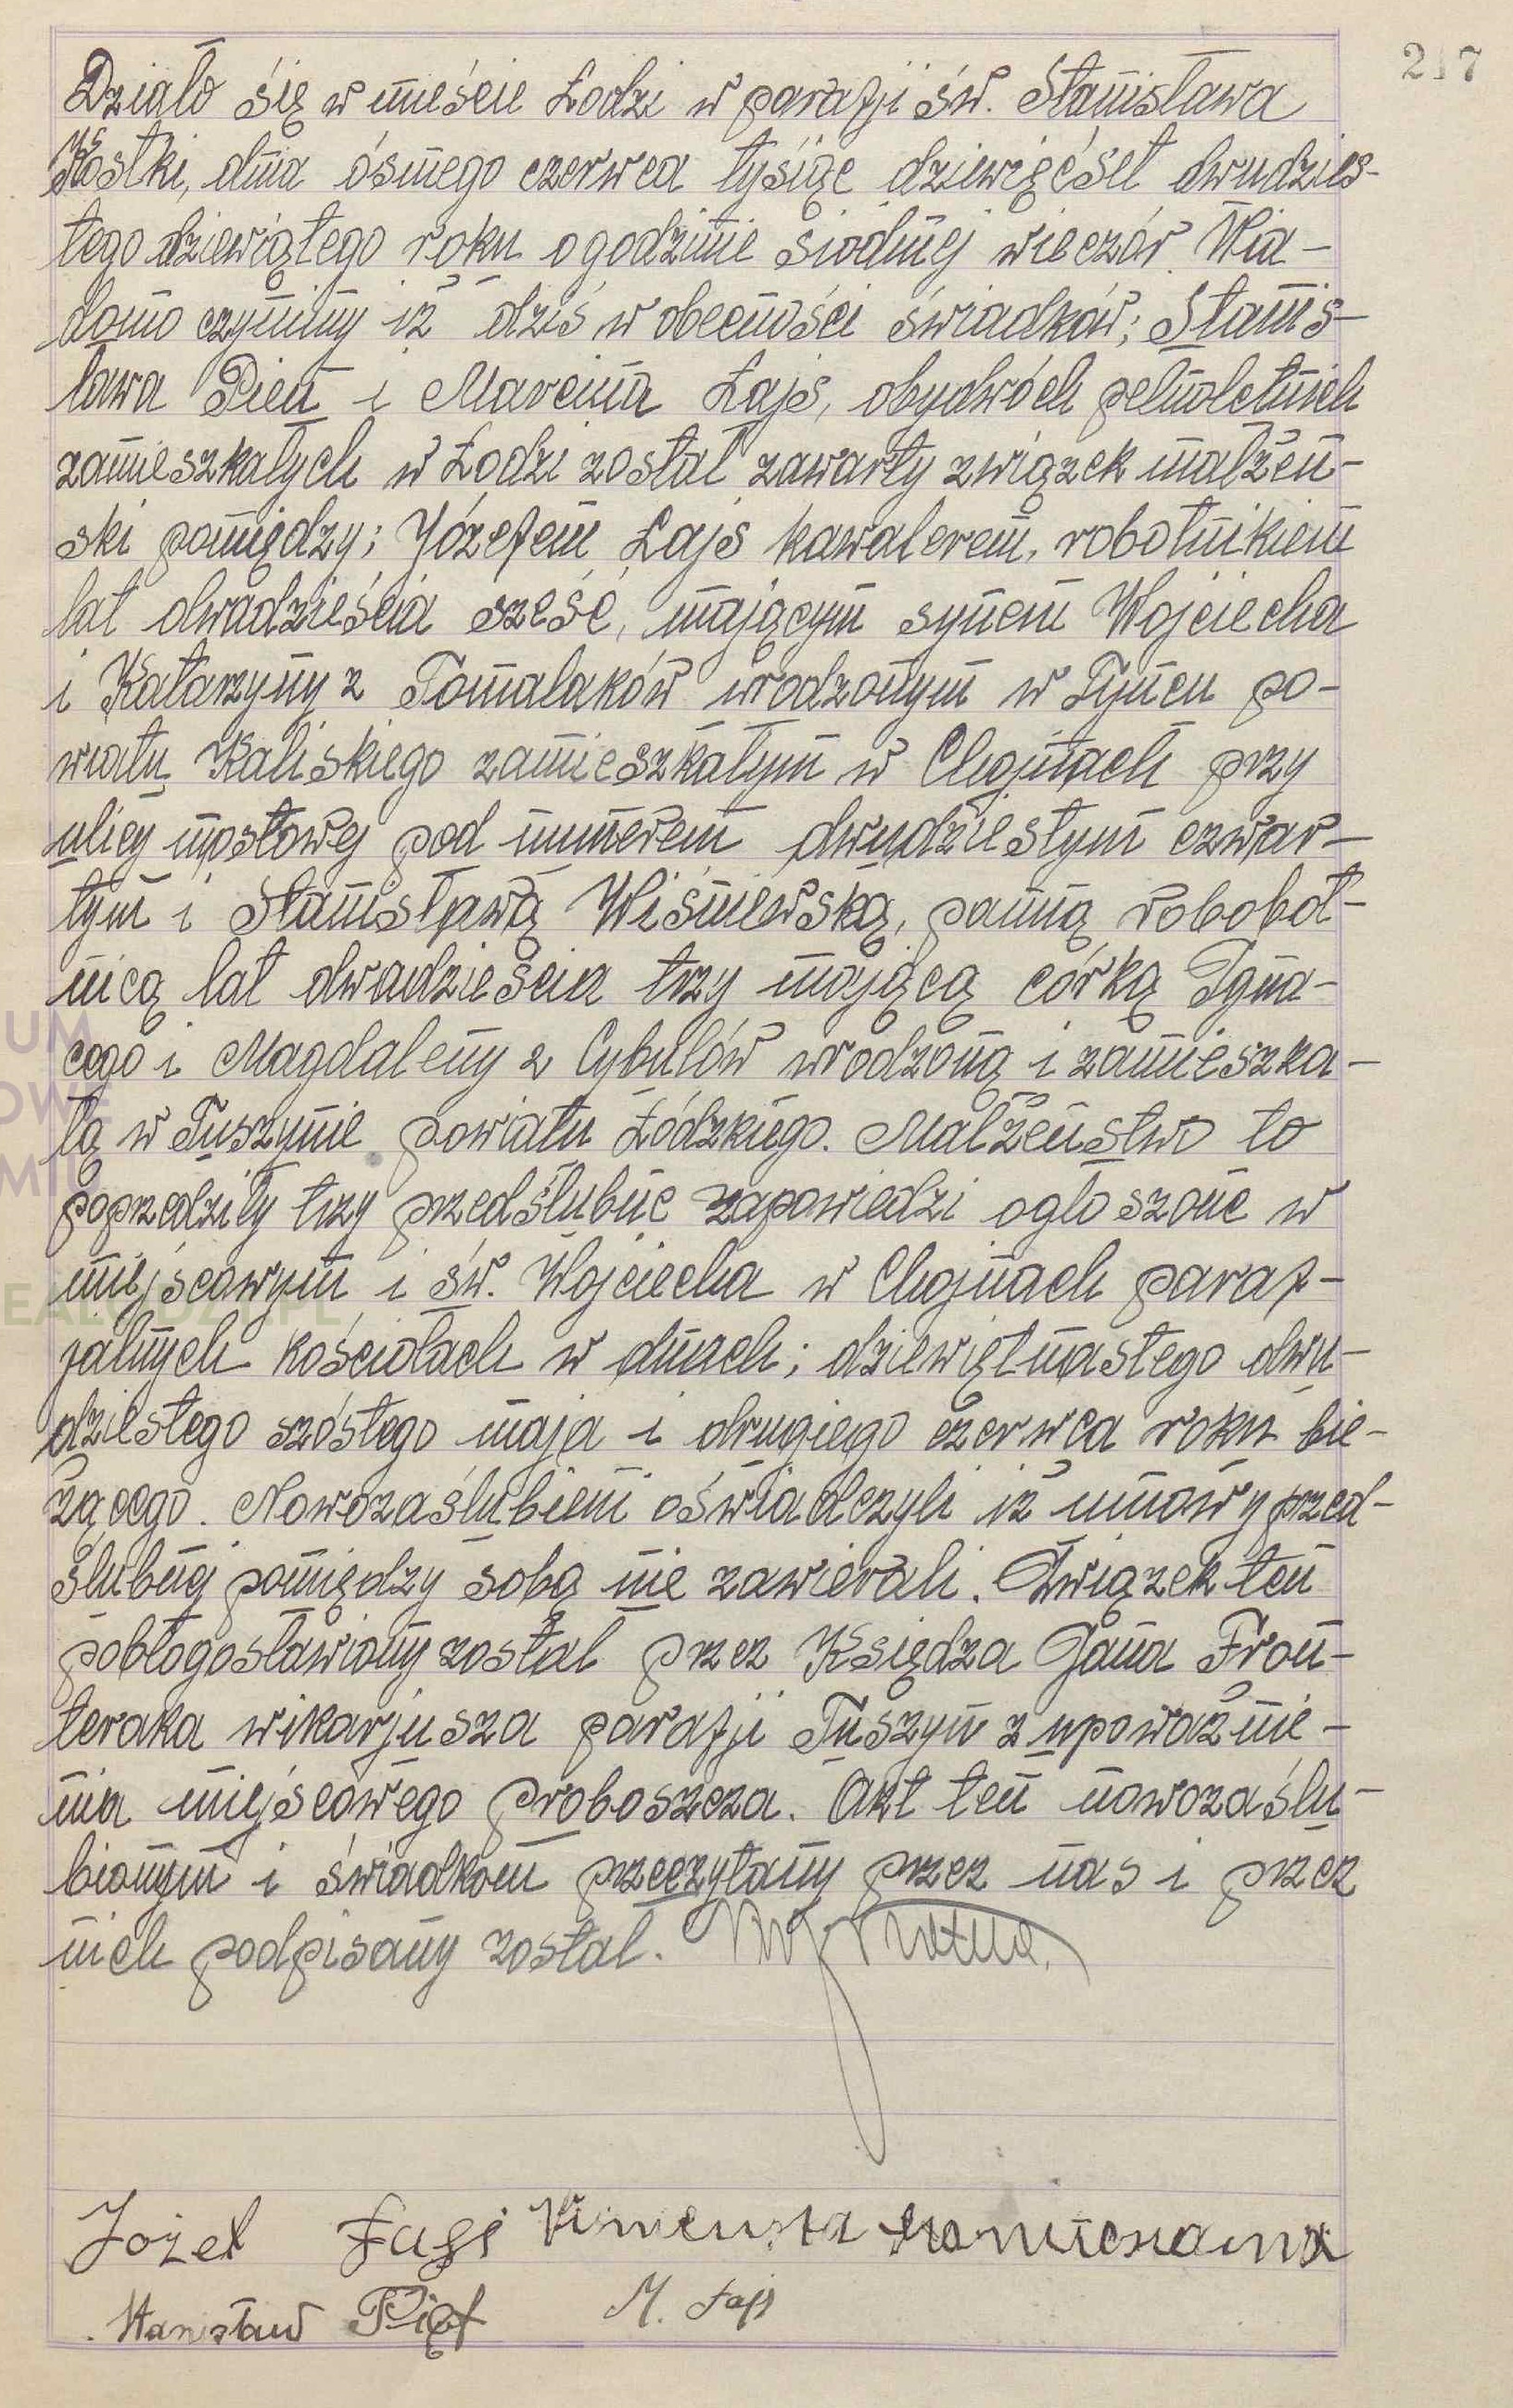 217
Działo się w mieście Łodzi w parafji św. Stanisława
Kostki, dnia ósmego czerwca tysiąc dziewięćset dwudzies-
tego dziewiątego roku o godzinie siódmej wieczór. Wia-
domo czynimy iż dziś w obecności świadków; Stanis-
ława Pień i Marcina Łajs, obydwóch pełnoletnich
zamieszkałych w Łodzi został zawarty związek małżeń-
ski pomiędzy; Józefem Łajs kawalerem, robotnikiem
lat dwadzieścia sześć, mającym synem Wojciecha
i Katarzyny z Tomalaków urodzonym w Tyńcu po-
wiatu Kaliskiego zamieszkałym w Chojnach przy
ulicy mostowej pod numerem dwudziestym czwar-
tym i Stanisławą Wiśniewską, panną robobot-
nicą lat dwadzieścia trzy mającą córką Igna-
cego i Magdaleny z Cybulów urodzoną i zamieszka-
łą w Tuszynie powiatu Łódzkiego. Małżeństwo to
poprzedziły trzy przedślubne zapowiedzi ogłoszone w
miejscowym i św. Wojciecha w Chojnach paraf-
jalnych kościołach w dniach; dziewiętnastego dwu-
dziestego szóstego maja i drugiego czerwca roku bie-
żącego. Nowozaślubieni oświadczyli iż umowy przed-
ślubnej pomiędzy sobą nie zawierali. Związek ten
pobłogosławiony został przez Księdza Jana Fron-
teraka wikarjusza parafji Tuszyn z upoważnie-
nia miejscowego proboszcza. Akt ten nowozaślu-
bionym i świadkom przeczytany przez nas i przez
nich podpisany został.
Józef Łajs
Stanisław M. Łajs
UM
OWE